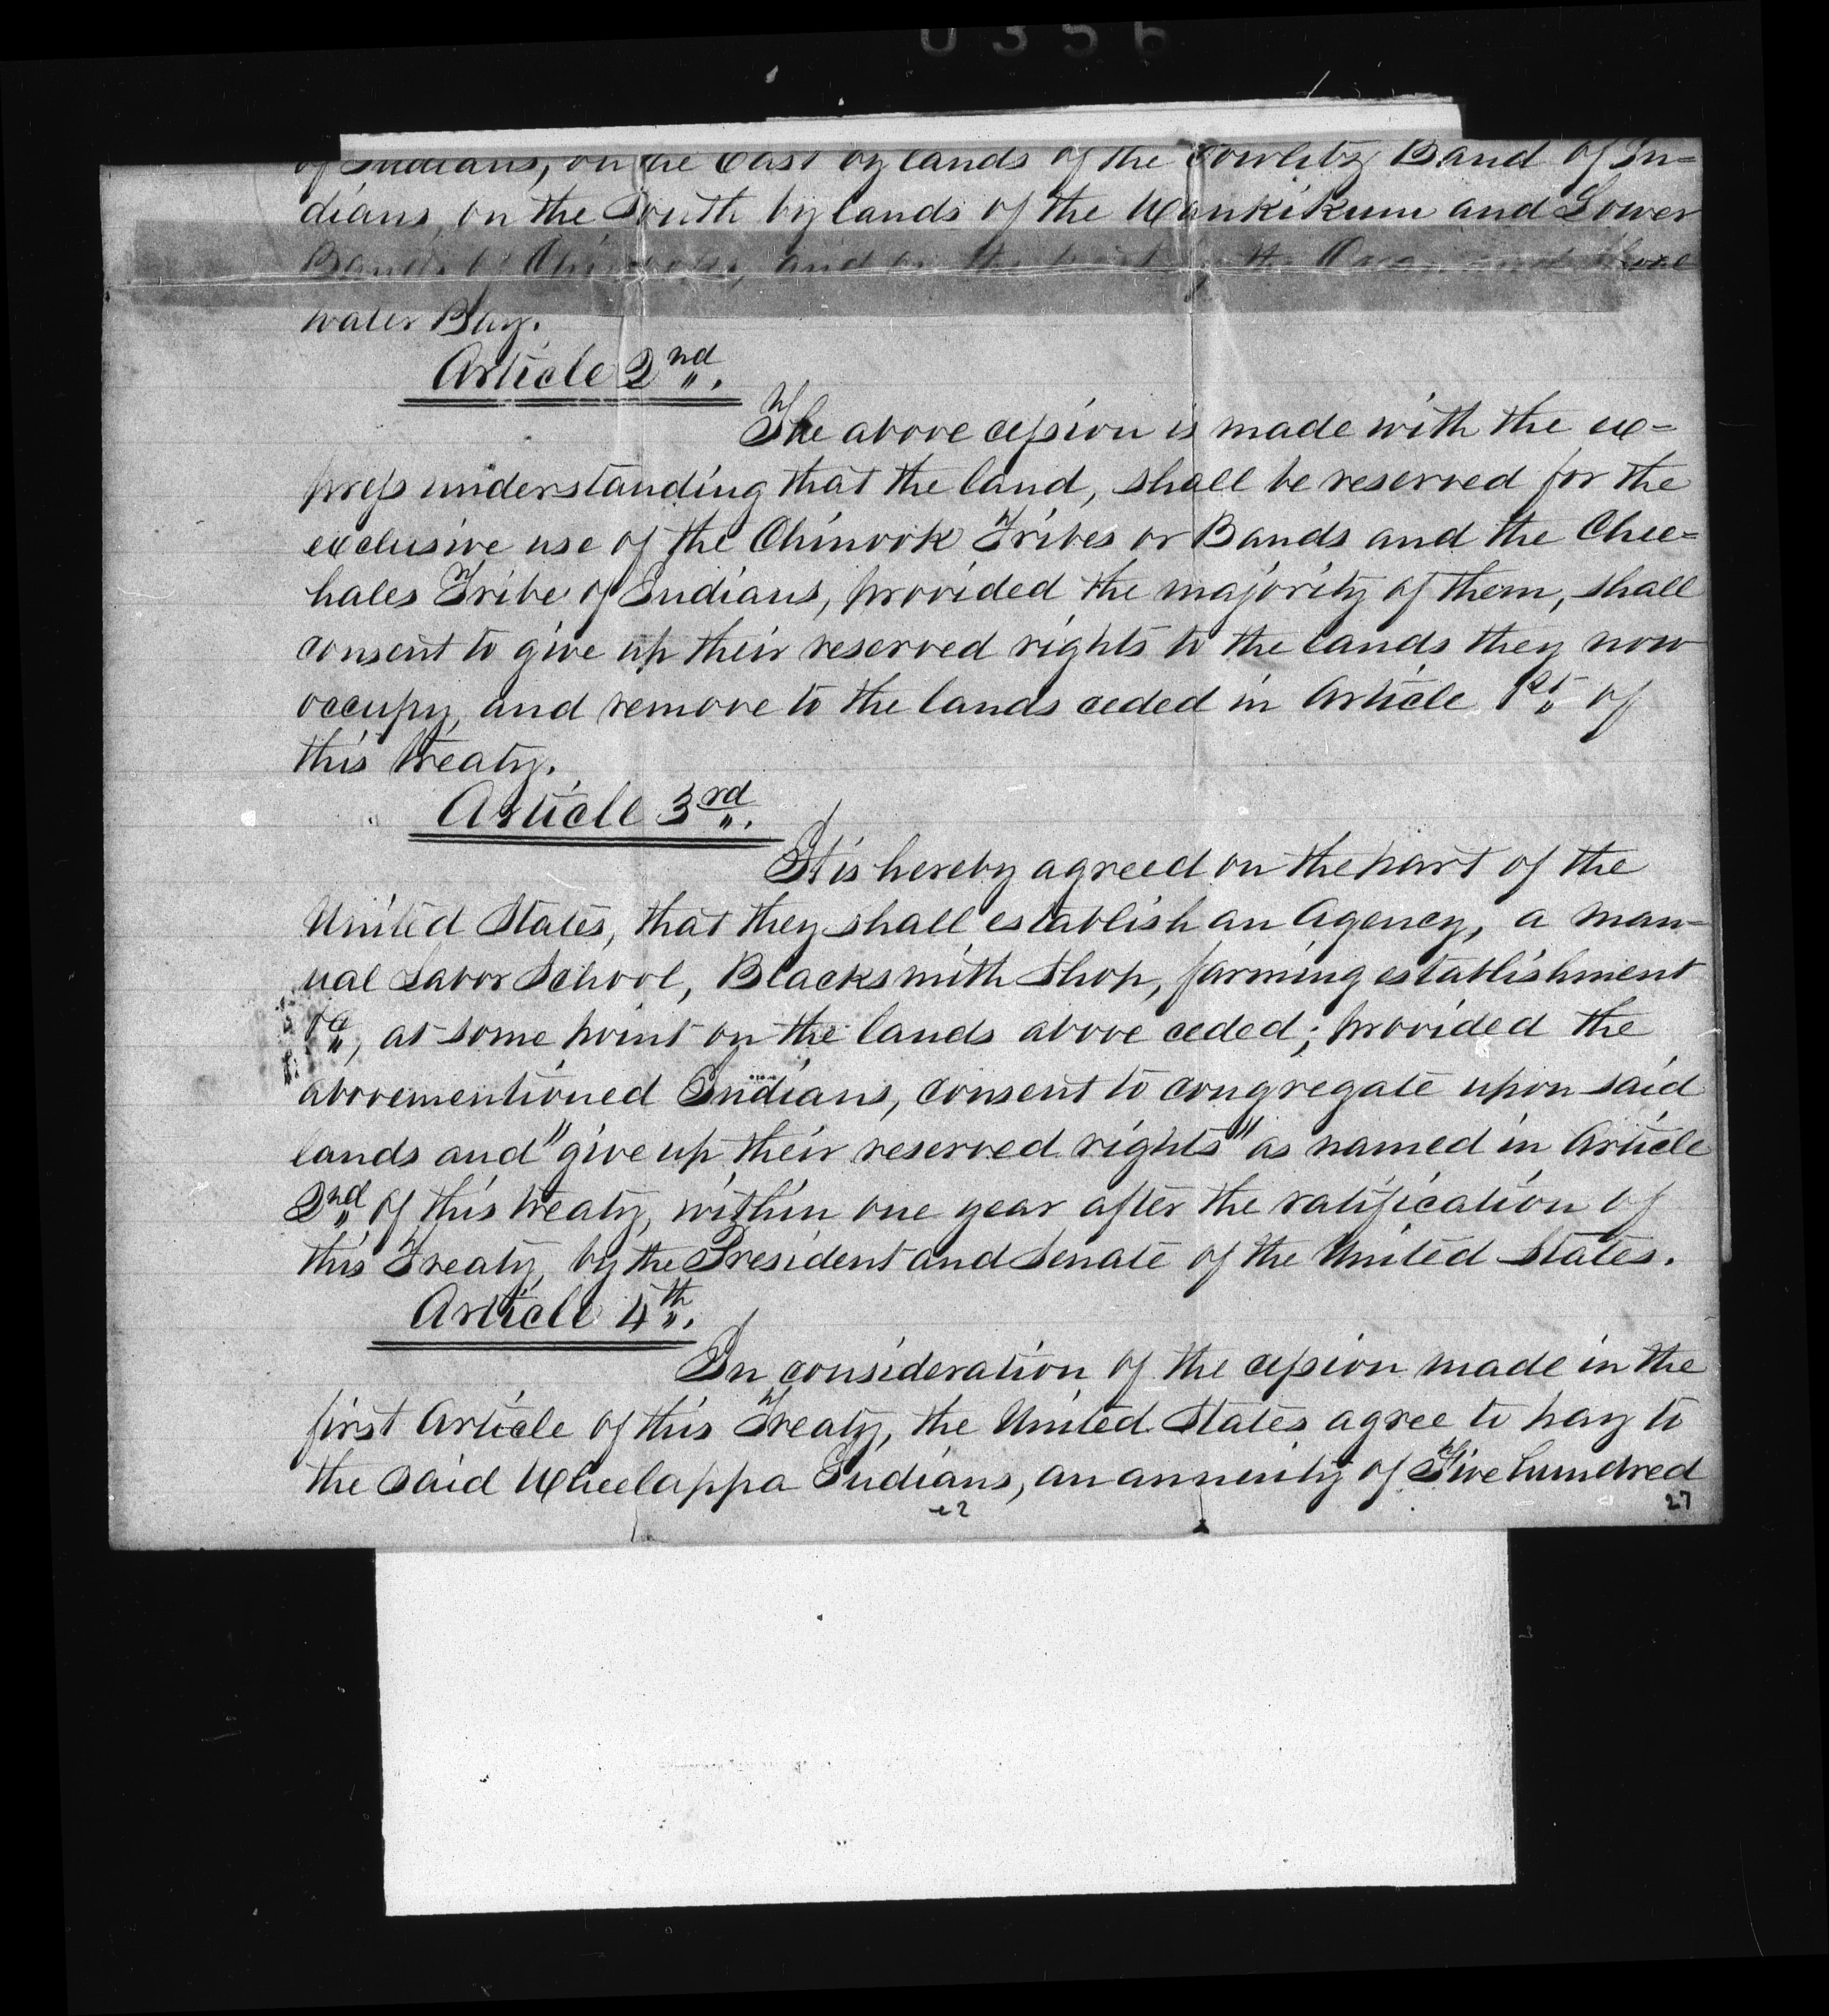 0356
of Indians, on the East by lands of the Cowlitz Band of In-
dians, on the South by lands of the Wankikum and Lower
Bands of Chinooks, and on the West by the Ocean and Shoal
water Bay.
Article 2nd.
The above cession is made with the ex-
press understanding that the land, shall be reserved for the
exclusive use of the Chinook Tribes or Bands and the Chee-
hales Tribe of Indians, provided the majority of them, shall
consent to give up their reserved rights to the lands they now
occupy, and remove to the lands ceded in Article 1st of
this treaty.
Article 3rd.
It is hereby agreed on the part of the
United States, that they shall establish an Agency, a man-
ual Labor School, Blacksmith Shop, farming establishment
&c, at some point on the lands above ceded; provided the
abovementioned Indians, consent to congregate upon said
lands and "give up their reserved rights" as named in Article
2nd of this treaty, within one year after the ratification of
this Treaty, by the President and Senate of the United States.
Article 4th.
In consideration of the cession made in the
first Article of this Treaty, the United States agree to pay to
the said Wheelappa Indians, an annuity of Five hundred
27